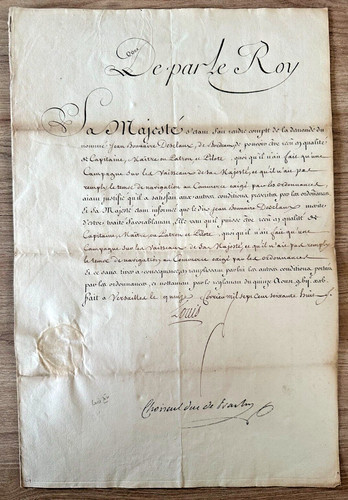 De par le Roy
Sa Majesté s'étant fait rendre compte de la demande du
nommé Jean Dominaire Desclaux, de pouvoir être reçu en qualité
de Capitaine, Maître ou Patron et Pilote, quoi qu'il n'ait fait qu'une
Campagne sur les Vaisseaux de Sa Majesté, et qu'il n'ait pas
rempli le tems de navigation au Commerce exigé par les ordonnances
ayant justifié qu'il a satisfait aux autres conditions prescrites par les ordonnances
Et Sa Majesté étant informée que led. Desclaux mérite
d'être traité favorablement, Elle veut qu'il puisse être reçu en qualité de
Capitaine, Maître ou Patron et Pilote, quoi qu'il n'ait fait qu'une
Campagne sur les Vaisseaux de Sa Majesté et qu'il n'ait pas rempli
le tems de navigation au Commerce exigé par les ordonnances
Et ce sans tirer à conséquence, en remplissant par lui les autres conditions portées
par les ordonnances, et notamment par le règlement du quinze Aout
fait à Versailles le quinze Février mil sept cent soixante trois
Louis
Choiseul duc de Praslin